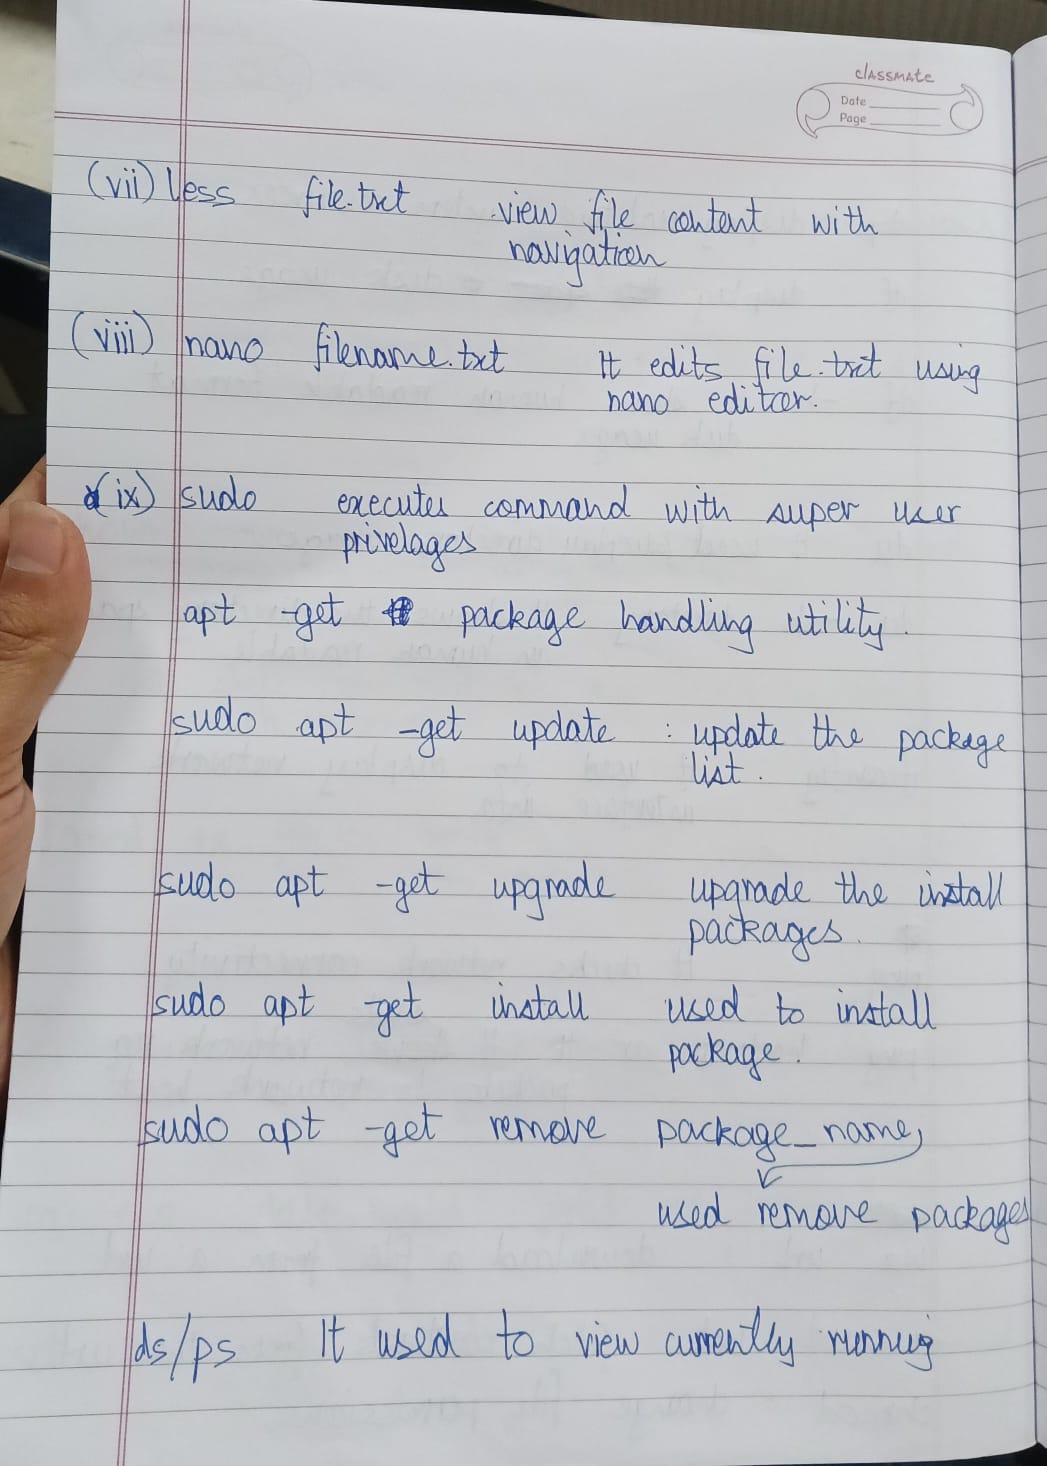 classmate
Date
Page
(vii) less file.txt view file content with
navigation
(viii) nano filename.txt It edits file.txt using
nano editor.
(ix) sudo executes command with super user
privelages
apt -get package handling utility.
sudo apt -get update : update the package
list.
sudo apt -get upgrade upgrade the install
packages.
sudo apt -get install used to install
package.
sudo apt -get remove package_name,
used remove packages
ds/ps It used to view currently running